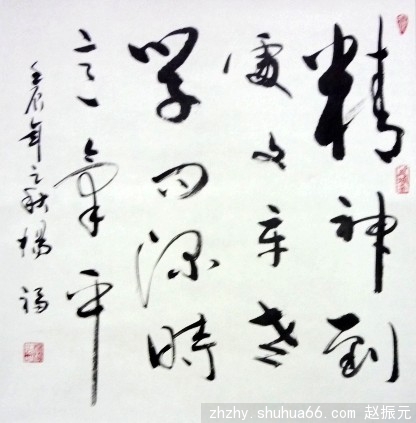 精神到
處文章老
學問深時
意氣平
壬辰年之秋楊福
zhzhy.shuhua66.com 赵振元